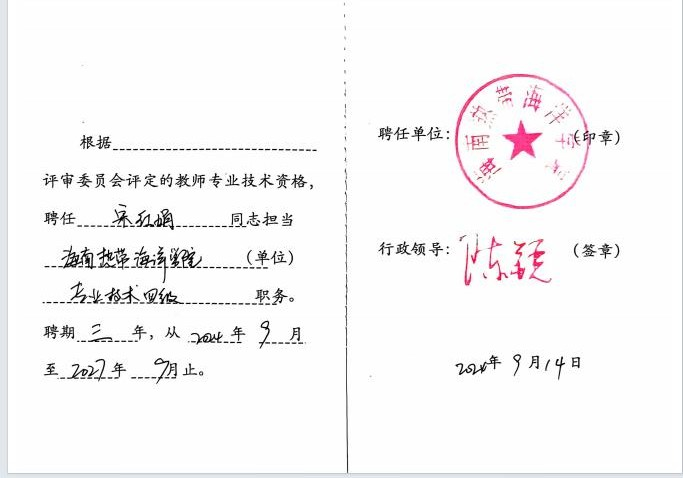 根据
评审委员会评定的教师专业技术资格，
聘任 宋红娟 同志担当
海南热带海洋学院 （单位）
专业技术四级 职务。
聘期 三 年，从 2024 年 9 月
至 2027 年 9 月止。
聘任单位： （印章）
海南热带海洋学院
行政领导： 陈锐 （签章）
2024年 9 月 14 日